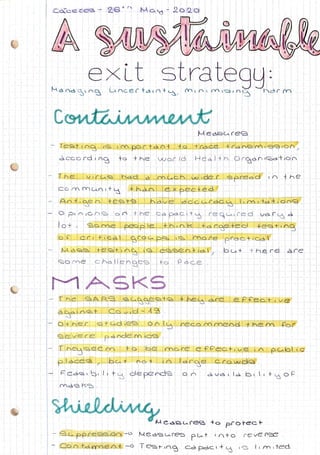 Cáceres - 26th May - 2020
A sustainable
exit strategy:
Managing uncertainty, minimising harm
Containment
Measures
- Testing is important to trace transmission,
according to the World Health Organisation
- The virus had a much wider spread in the
community than expected
- Antigen tests have accuracy limitations
- Opinions on the capacity required vary a
lot. Some people think targeted testing
of critical groups is more practical
- Mass testing is essential, but there are
some challenges to face.
MASKS
- The SARS suggests they are effective
against Covid-19
- Other studies only recommend them for
severe pandemics
- They seem to be more effective in public
places, but not in large crowds
- Feasibility depends on availability of
masks.
Shielding
Measures to protect
- Suppression → Measures put into reverse
- Containment → Testing capacity is limited